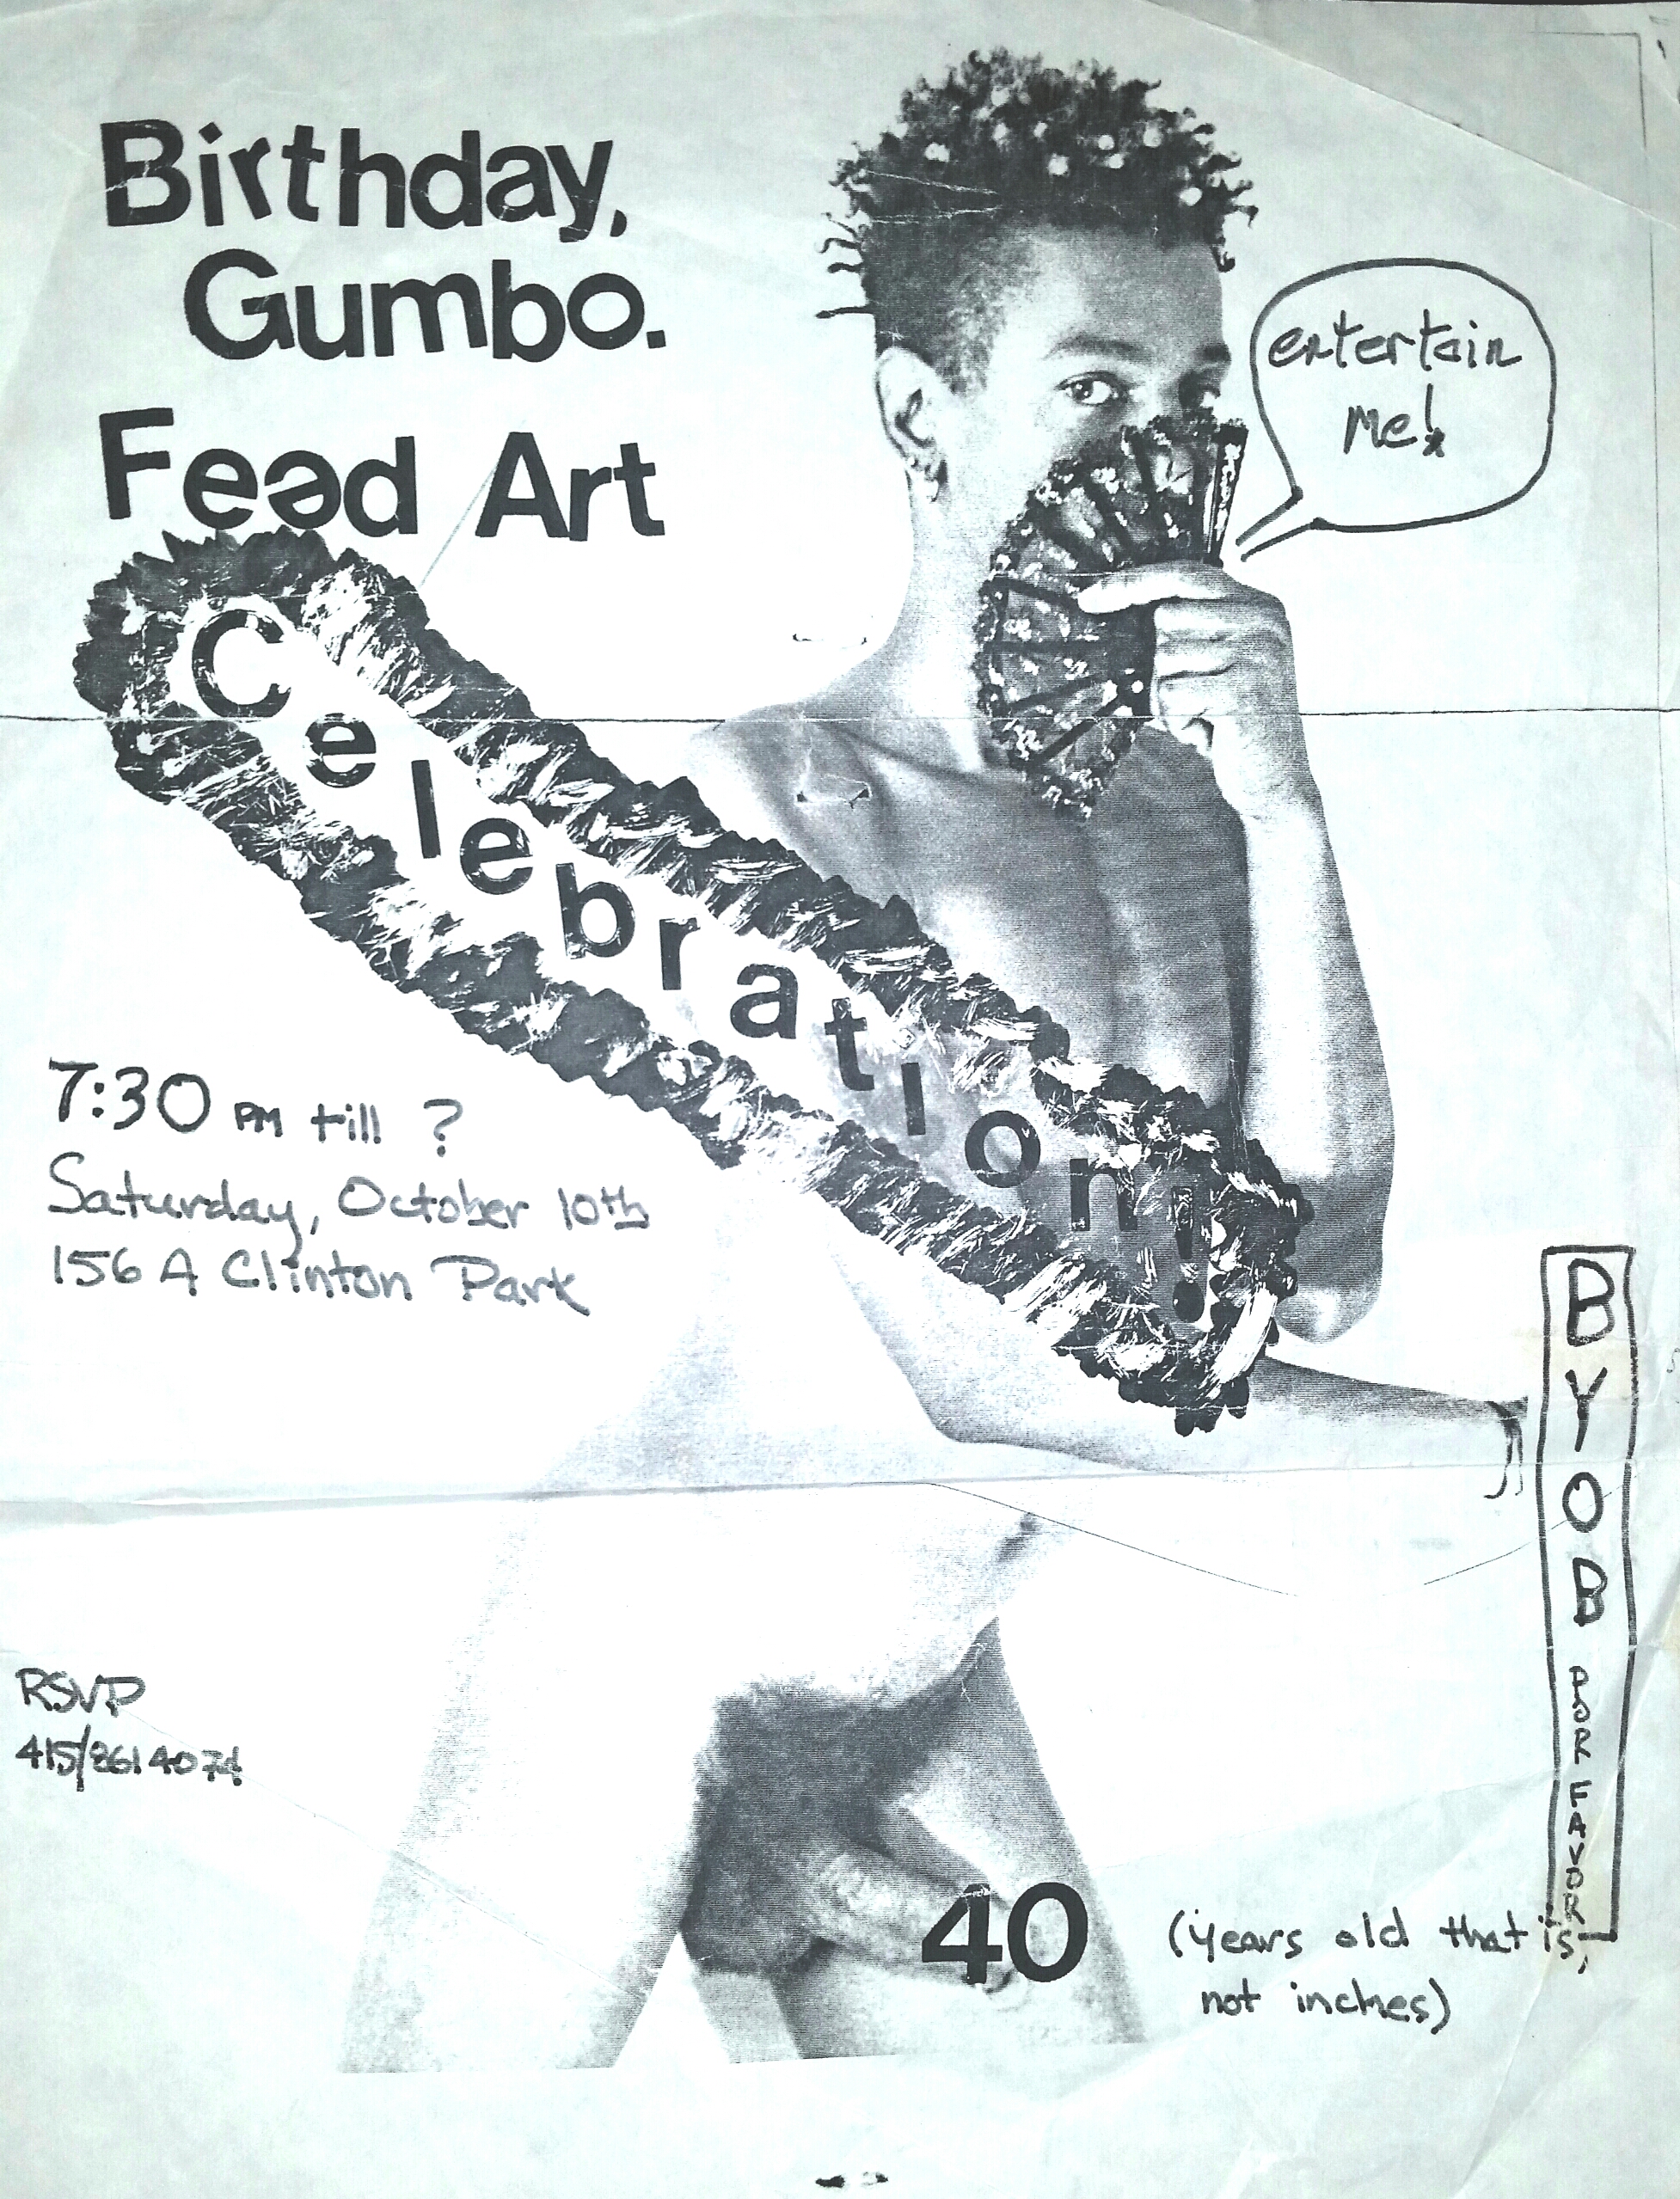 Birthday,
Gumbo.
Feəd Art
Celebration!
entertain
me!
7:30 PM till ?
Saturday, October 10th
156 A Clinton Park
BYOB POR FAVOR
RSVP
415/861 4074
40
(years old that is,
not inches)